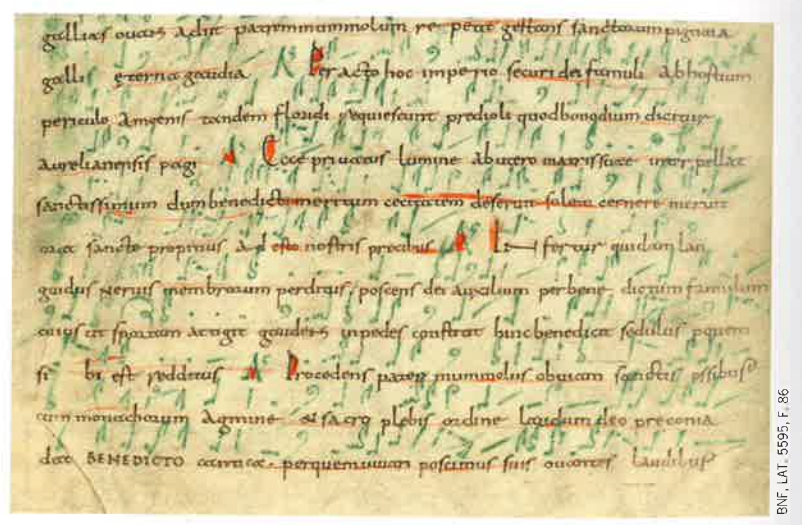 gallias ovans adiit patrem mummolum repetit gestans sanctorum pignora
gallis eterna gaudia Peracto hoc imperio securi dei famuli ab hostium
periculo tandem floridi requiescunt predioli quod bonodium dicitur
aurelianensis pagi A Cece privatus lumine ab utero matris interpellat
sanctissimum dum benedictum mertum cecitatem deseruit solem cernere meruit
sancto propinus ad esto nostris precibus fertur quidam lan
guidus nervis membrorum perditus poscens dei auxilium per bene dictum famulum
cuius ut sportam attigit gaudens in pedes constitit hinc benedicit sedulus quem
si bi est redditus Procedens pater mummolus obviam sanctis ossibus
cum monachorum Agmine & sacro plebis ordine laudum deo preconia
dat BENEDICTO cantica perquem poscimus suis ovantes laudibus
BNF, LAT. 5595, F. 86